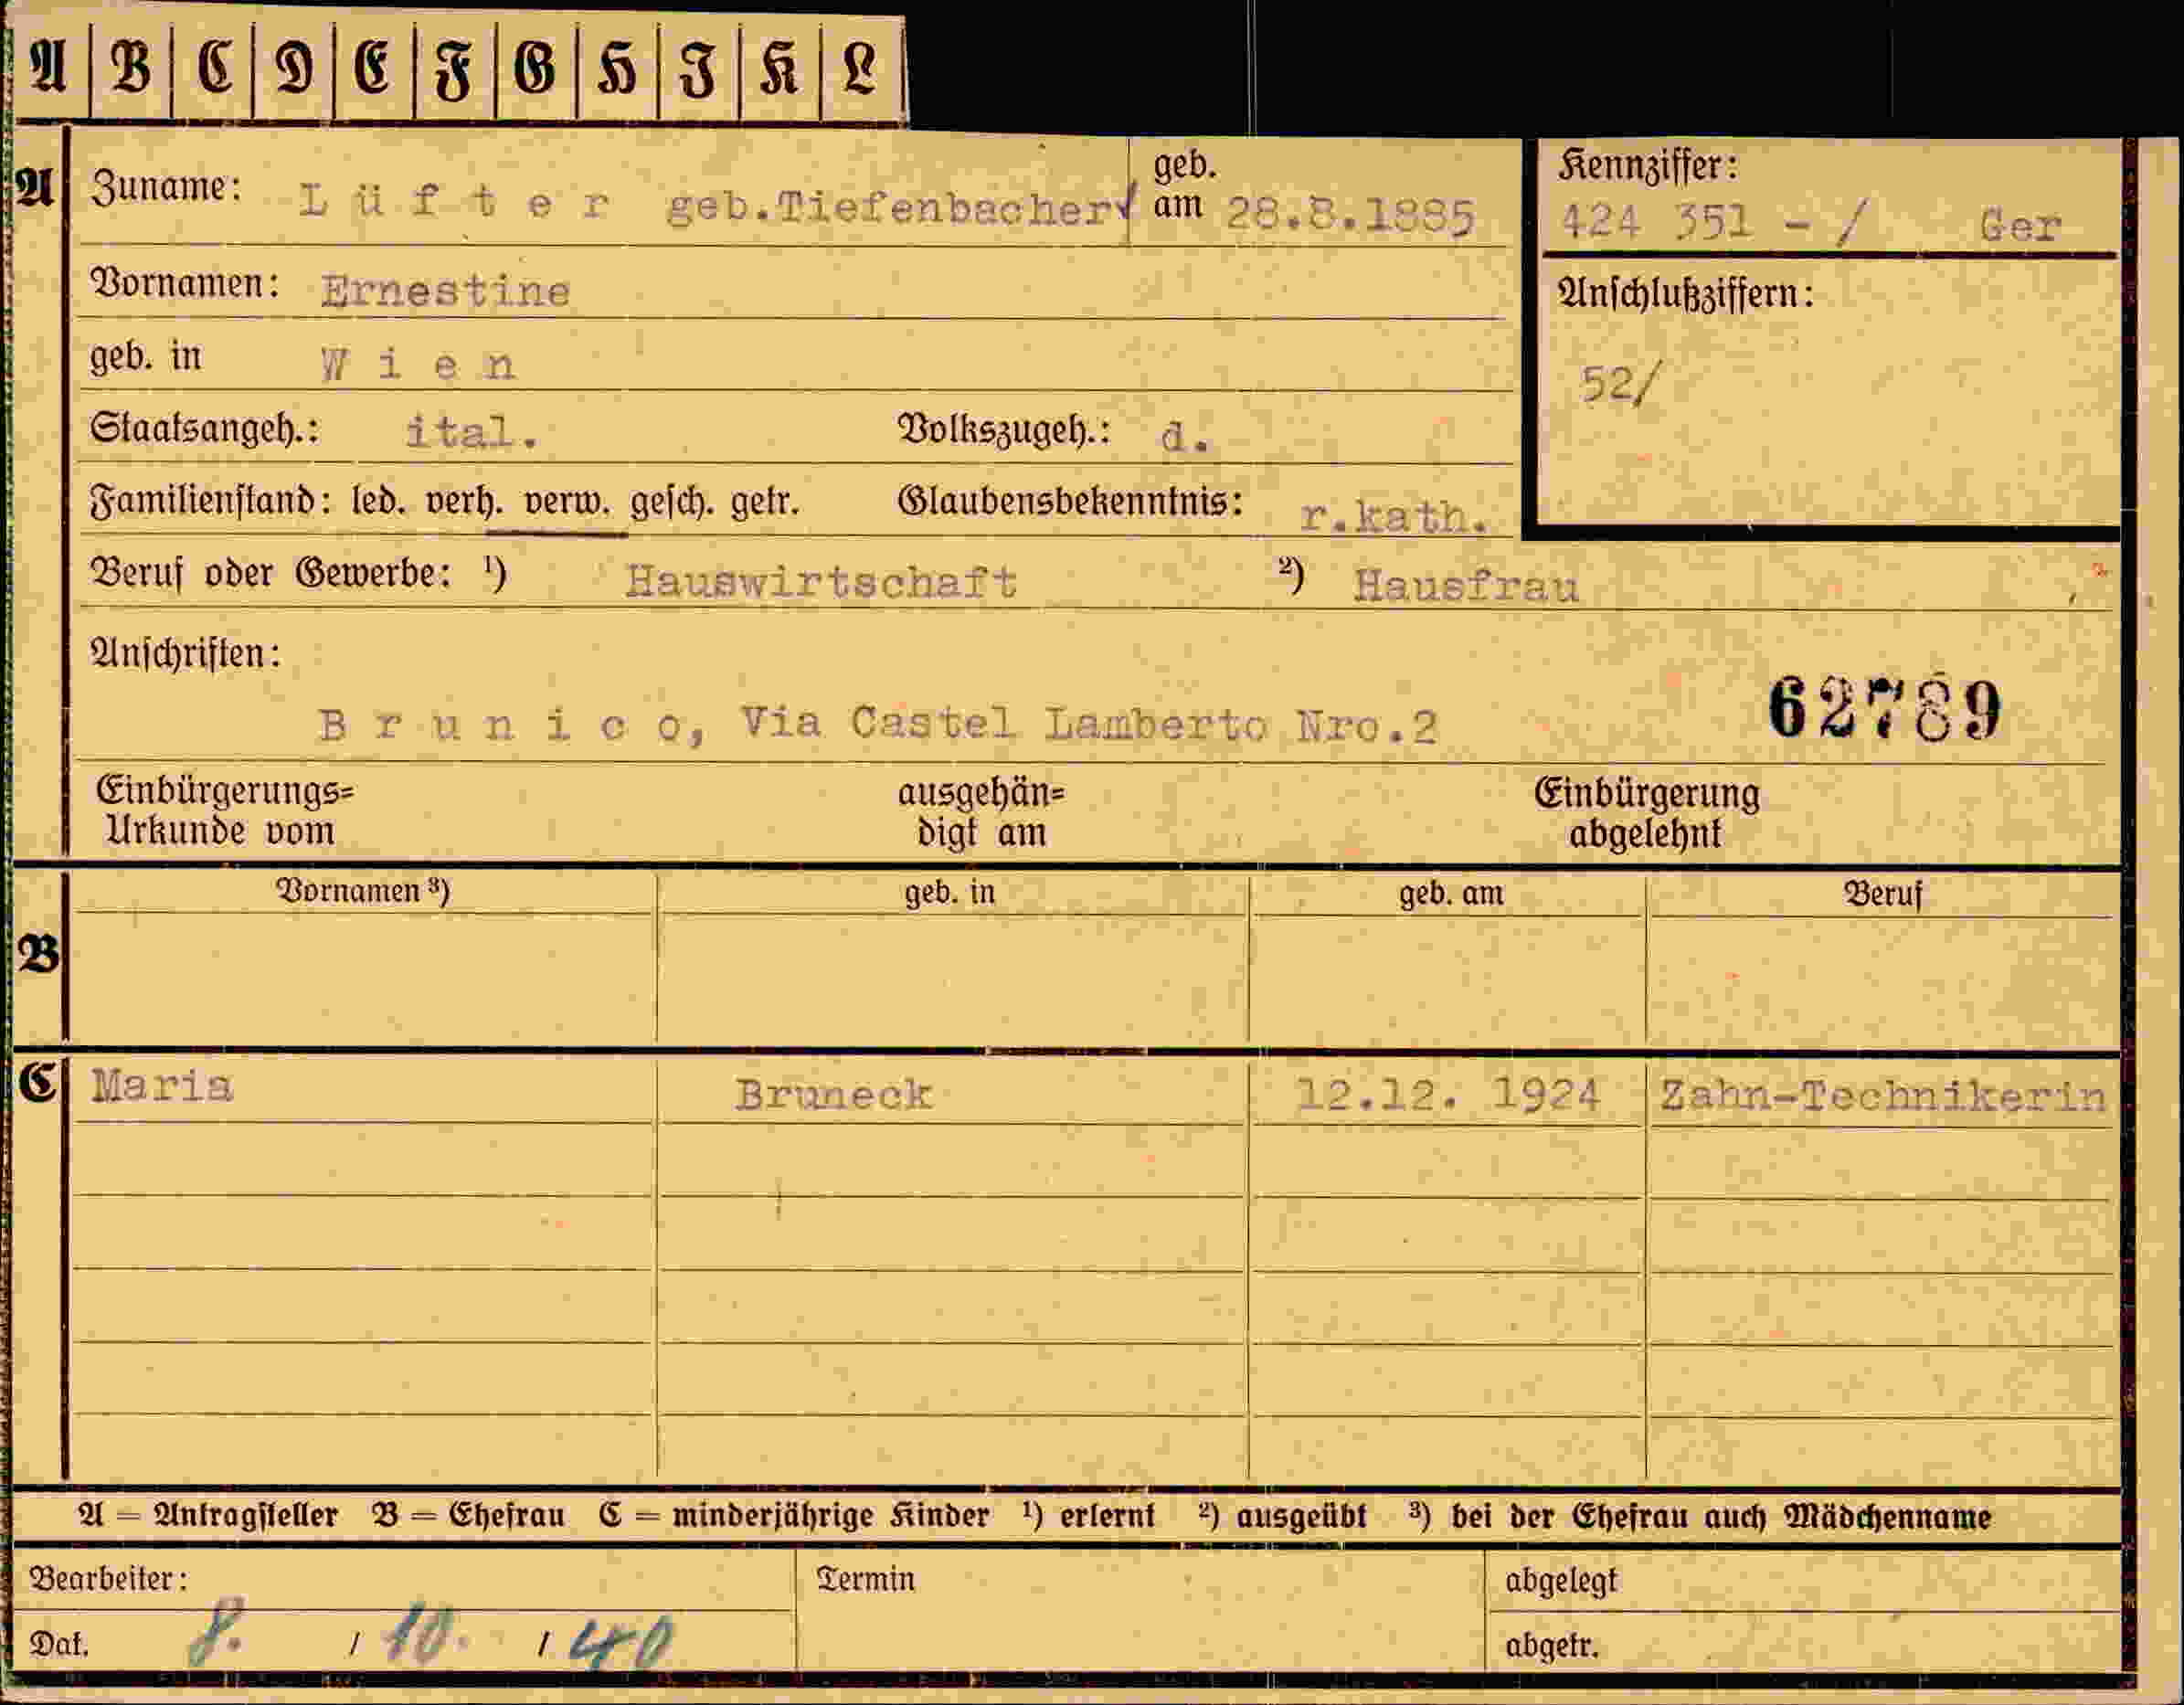 A B C D E F G H I K L
A Zuname: Lüfter geb.Tiefenbacher geb. am 28.8.1885
Kennziffer:
424 351 - / Ger
Vornamen: Ernestine
Anschlußziffern:
geb. in Wien
52/
Staatsangeh.: ital. Volkszugeh.: d.
Familienstand: led. verh. verw. gesch. getr. Glaubensbekenntnis: r.kath.
Beruf oder Gewerbe: ¹) Hauswirtschaft ²) Hausfrau
Anschriften:
Brunico, Via Castel Lamberto Nro.2
62789
Einbürgerungs= ausgehän= Einbürgerung
Urkunde vom digt am abgelehnt
Vornamen ³) geb. in geb. am Beruf
B
C Maria Bruneck 12.12. 1924 Zahn-Technikerin
A = Antragsteller B = Ehefrau C = minderjährige Kinder ¹) erlernt ²) ausgeübt ³) bei der Ehefrau auch Mädchenname
Bearbeiter: Termin abgelegt
Dat. 8. / 10. / 40 abgetr.